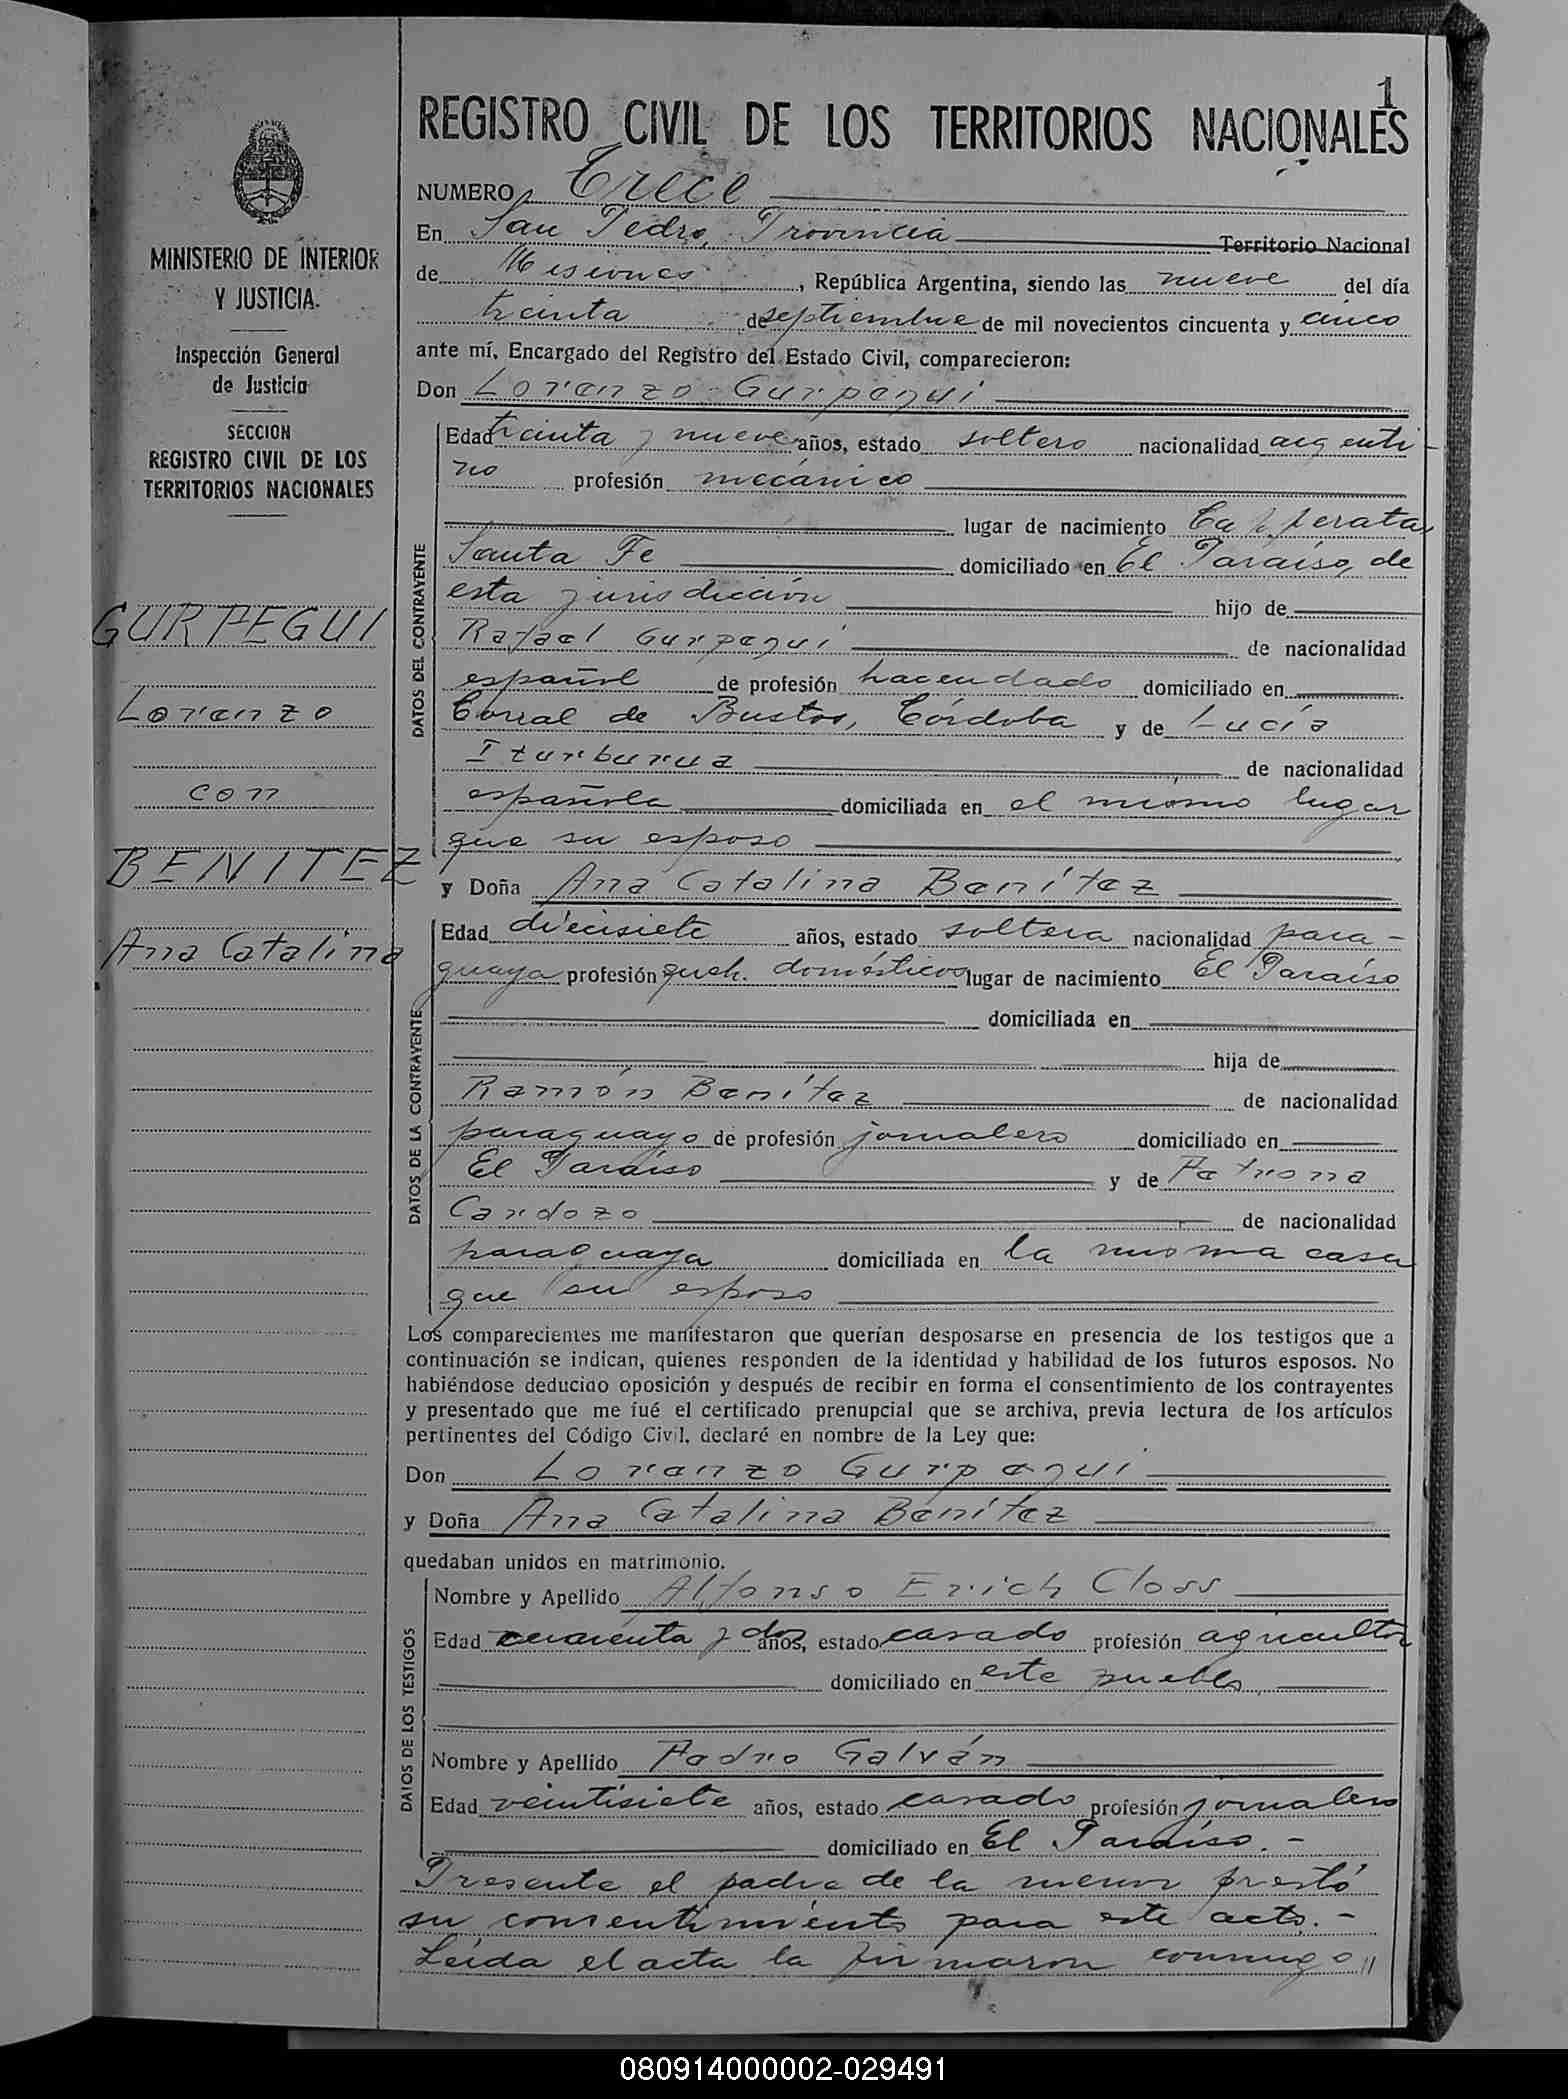 1
REGISTRO CIVIL DE LOS TERRITORIOS NACIONALES
NUMERO Trece
En San Pedro, Provincia Territorio Nacional
de Misiones, República Argentina, siendo las nueve del día
treinta de septiembre de mil novecientos cincuenta y cinco
ante mí, Encargado del Registro del Estado Civil, comparecieron:
Don Lorenzo Gurpegui
MINISTERIO DE INTERIOR
Y JUSTICIA.
Inspección General
de Justicia
SECCION
REGISTRO CIVIL DE LOS
TERRITORIOS NACIONALES
GURPEGUI
Lorenzo
con
BENITEZ
Ana Catalina
DATOS DEL CONTRAYENTE
Edad treinta y nueve años, estado soltero nacionalidad argenti-
no profesión mecánico
lugar de nacimiento
Santa Fe domiciliado en El Paraíso, de
esta jurisdicción hijo de
Rafael Gurpegui de nacionalidad
español de profesión hacendado domiciliado en
Corral de Bustos, Córdoba y de Lucía
Izurburua de nacionalidad
española domiciliada en el mismo lugar
que su esposo
y Doña Ana Catalina Benítez
DATOS DE LA CONTRAYENTE
Edad diecisiete años, estado soltera nacionalidad para-
guaya profesión queh. domésticos lugar de nacimiento El Paraíso
domiciliada en
hija de
Ramón Benítez de nacionalidad
paraguayo de profesión jornalero domiciliado en
El Paraíso y de Petrona
Cardozo de nacionalidad
paraguaya domiciliada en la misma casa
que su esposo
Los comparecientes me manifestaron que querían desposarse en presencia de los testigos que a
continuación se indican, quienes responden de la identidad y habilidad de los futuros esposos. No
habiéndose deducido oposición y después de recibir en forma el consentimiento de los contrayentes
y presentado que me fué el certificado prenupcial que se archiva, previa lectura de los artículos
pertinentes del Código Civil, declaré en nombre de la Ley que:
Don Lorenzo Gurpegui
y Doña Ana Catalina Benítez
quedaban unidos en matrimonio.
DATOS DE LOS TESTIGOS
Nombre y Apellido Alfonso Erich Closs
Edad cuarenta y dos años, estado casado profesión agricultor
domiciliado en este pueblo
Nombre y Apellido Pedro Galván
Edad veintisiete años, estado casado profesión jornalero
domiciliado en El Paraíso.-
Presente el padre de la menor prestó
su consentimiento para este acto.-
Leída el acta la firmaron conmigo //
080914000002-029491